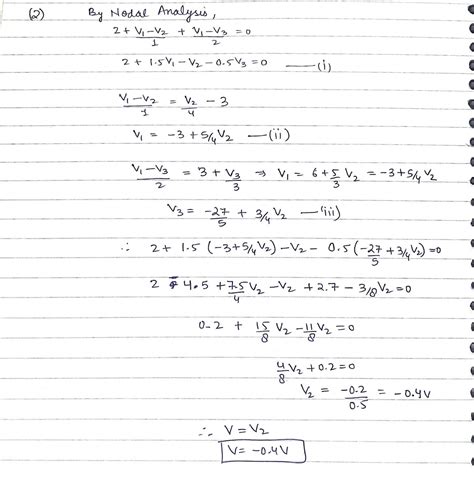 (2) By Nodal Analysis,
2 + (V₁-V₂)/1 + (V₁-V₃)/2 = 0
2 + 1.5V₁ - V₂ - 0.5V₃ = 0 —(i)
(V₁-V₂)/1 = V₂/4 - 3
V₁ = -3 + 5/4 V₂ —(ii)
(V₁-V₃)/2 = 3 + V₃/3 ⇒ V₁ = 6 + 5/3 V₂ = -3 + 5/4 V₂
V₃ = -27/5 + 3/4 V₂ —(iii)
∴ 2 + 1.5 (-3 + 5/4 V₂) - V₂ - 0.5 (-27/5 + 3/4 V₂) = 0
2 - 4.5 + 7.5/4 V₂ - V₂ + 2.7 - 3/8 V₂ = 0
0.2 + 15/8 V₂ - 11/8 V₂ = 0
4/8 V₂ + 0.2 = 0
V₂ = -0.2/0.5 = -0.4V
∴ V = V₂
V = -0.4V